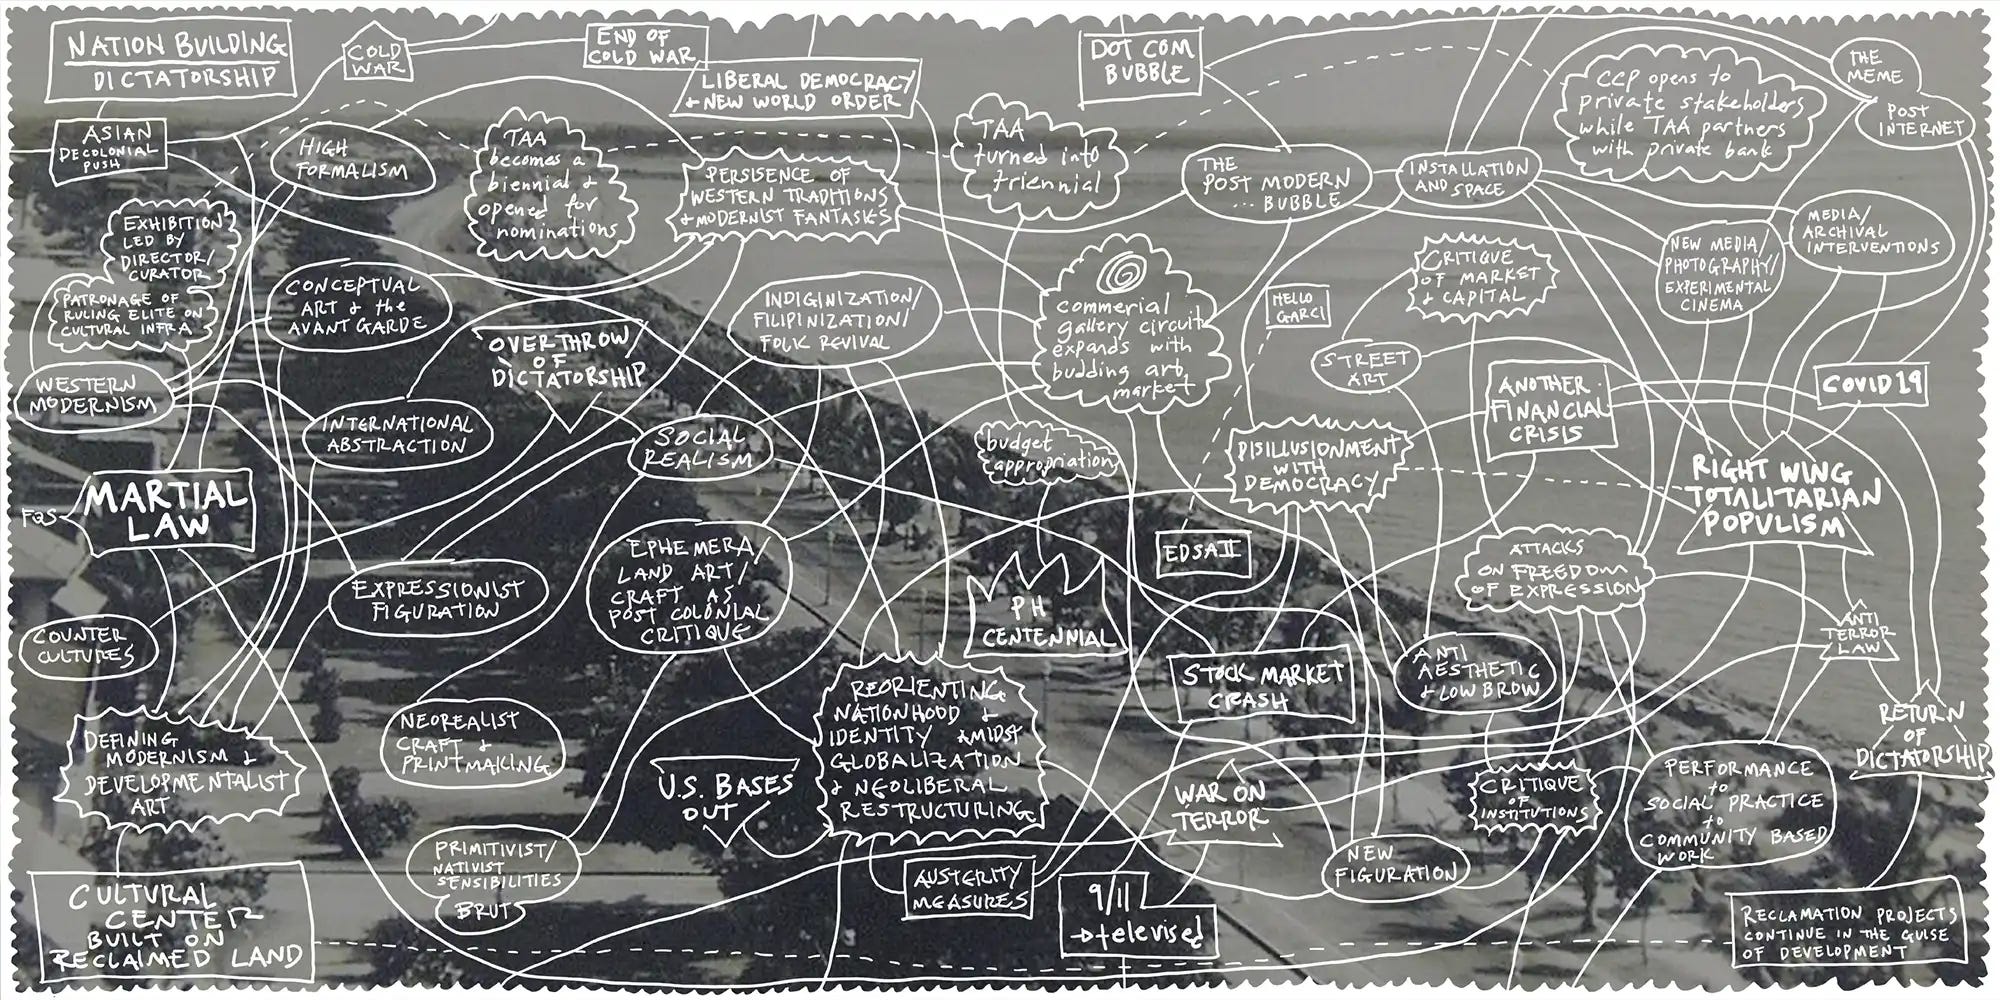 NATION BUILDING
DICTATORSHIP
COLD
WAR
END OF
COLD WAR
LIBERAL DEMOCRACY/
+ NEW WORLD ORDER
DOT COM
BUBBLE
CCP opens to
private stakeholders
while TAA partners
with private bank
THE
MEME
POST
INTERNET
ASIAN
DECOLONIAL
PUSH
HIGH
FORMALISM
TAA
becomes a
biennial +
opened for
nominations
PERSISENCE OF
WESTERN TRADITIONS
+ MODERNIST FANTASIES
TAA
turned into
triennial
THE
POST MODERN
... BUBBLE
INSTALLATION
AND SPACE
EXHIBITION
LED BY
DIRECTOR/
CURATOR
PATRONAGE OF
RULING ELITE ON
CULTURAL INFRA
CONCEPTUAL
ART & the
AVANT GARDE
OVERTHROW
OF
DICTATORSHIP
INDIGINIZATION/
FILIPINIZATION/
FOLK REVIVAL
commerial
gallery circuit
expands with
budding art
market
HELLO
GARCI
CRITIQUE
OF MARKET
& CAPITAL
NEW MEDIA/
PHOTOGRAPHY/
EXPERIMENTAL
CINEMA
MEDIA/
ARCHIVAL
INTERVENTIONS
WESTERN
MODERNISM
INTERNATIONAL
ABSTRACTION
SOCIAL
REALISM
budget
appropriation
DISILLUSIONMENT
WITH
DEMOCRACY
STREET
ART
ANOTHER
FINANCIAL
CRISIS
COVID 19
FQS
MARTIAL
LAW
RIGHT WING
TOTALITARIAN
POPULISM
EXPRESSIONIST
FIGURATION
EPHEMERA/
LAND ART/
CRAFT AS
POST COLONIAL
CRITIQUE
PH
CENTENNIAL
EDSA II
ATTACKS
ON FREEDOM
OF EXPRESSION
COUNTER
CULTURES
ANTI
TERROR
LAW
STOCK MARKET
CRASH
ANTI
AESTHETIC
& LOW BROW
DEFINING
MODERNISM &
DEVELOPMENTALIST
ART
NEOREALIST
CRAFT &
PRINTMAKING
U.S. BASES
OUT
REORIENTING
NATIONHOOD &
IDENTITY AMIDST
GLOBALIZATION
& NEOLIBERAL
RESTRUCTURING
WAR ON
TERROR
CRITIQUE
OF
INSTITUTIONS
PERFORMANCE
to
SOCIAL PRACTICE
to
COMMUNITY BASED
WORK
RETURN
OF
DICTATORSHIP
CULTURAL
CENTER
BUILT ON
RECLAIMED LAND
PRIMITIVIST/
NATIVIST
SENSIBILITIES
BRUTS
AUSTERITY
MEASURES
9/11
→televised
NEW
FIGURATION
RECLAMATION PROJECTS
CONTINUE IN THE GUISE
OF DEVELOPMENT